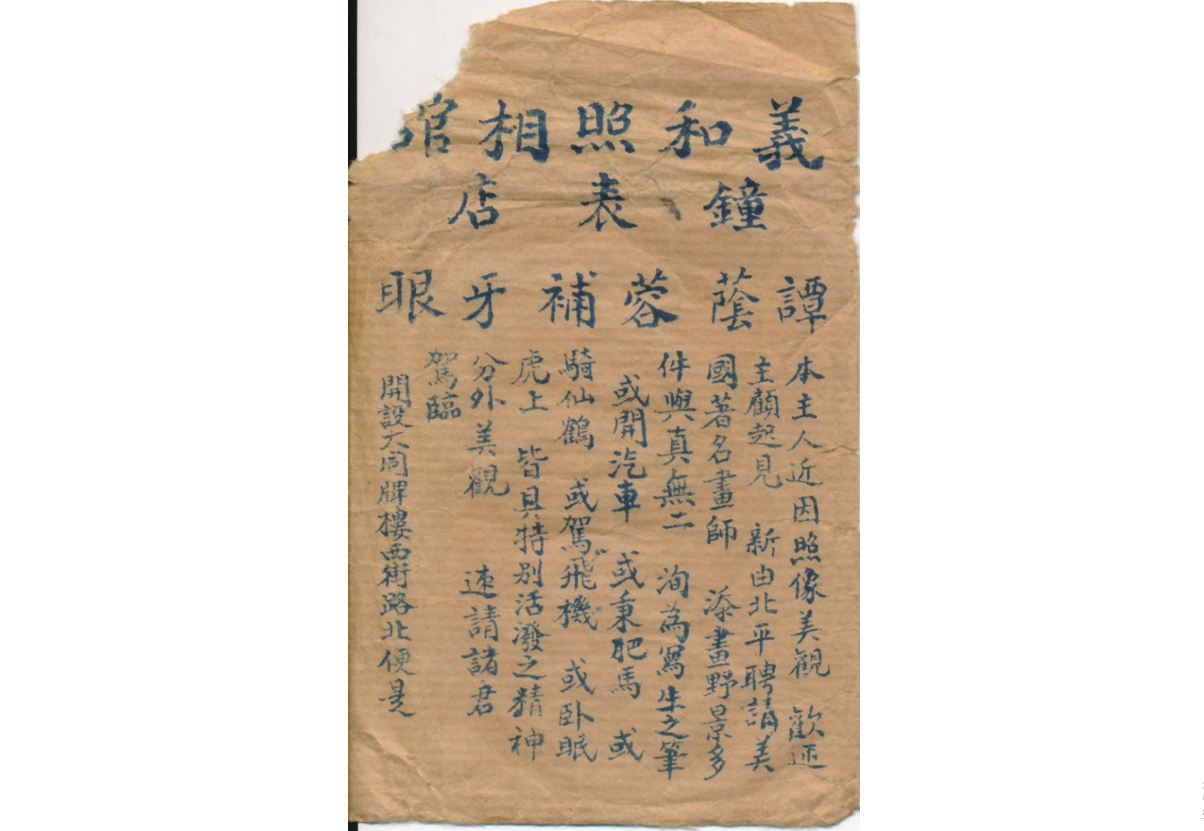 義和照相館
鐘表店
譚蔭蓉補牙眼
本主人近因照像美觀 歡迎
主顧起見 新由北平聘請美
國著名畫師 添畫野景多
件與真無二 洵為寫生之筆
或開汽車 或乘肥馬 或
騎仙鶴 或駕飛機 或卧眠
虎上 皆具特別活潑之精神
分外美觀 速請諸君
駕臨
開設大同牌樓西街路北便是